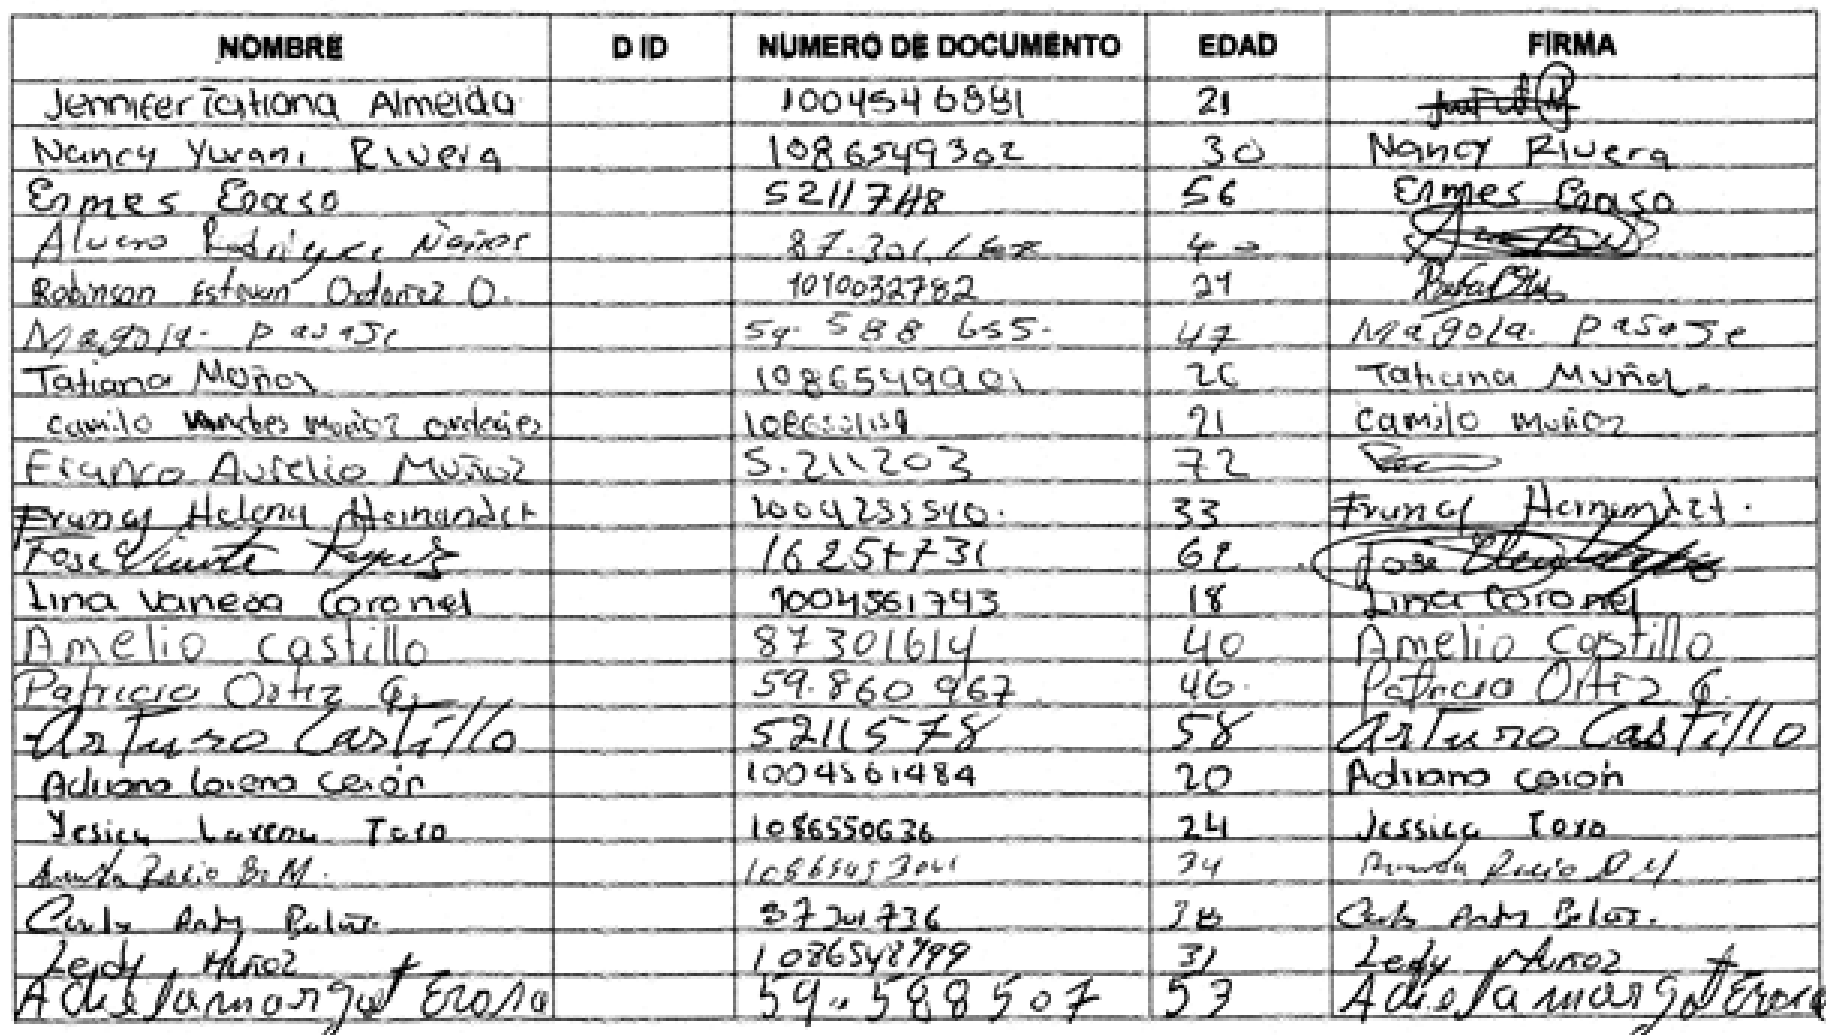 NOMBRE D ID NUMERO DE DOCUMENTO EDAD FIRMA
Jennifer Tatiana Almeida 1004546881 21
Nancy Yurani Rivera 1086549302 30 Nancy Rivera
Ermes Eraso 5211748 56 Ermes Eraso
Alvaro Rodriguez 40
Robinson Estevan Ordoñez O. 1010032782 21
Magola. pasaje 59. 588 655. 47 Magola. pasaje
Tatiana Muñoz 1086549901 26 Tatiana Muñoz.
Camilo Muñoz 21 Camilo muñoz
Franco Aurelio Muñoz 5.211203 72
Francy Helena Hernandez 1004235540. 33 Francy Hernandez.
Jose 16257731 62 Jose
Lina Vanesa Coronel 1004561793 18 Lina Coronel
Amelio castillo 87301614 40 Amelio Castillo
Patricia Ortiz G. 59.860 967 46. Patricia Ortiz G.
Arturo Castillo 5211578 58 Arturo Castillo
Adriana Lorena Cerón 1004561484 20 Adriana Cerón
Yesica Lorena Toro 1086550636 24 Jessica Toro
Rocio 34 Rocio
38
Leidy Muñoz 1086548799 31 Leidy Muñoz
59.588507 53